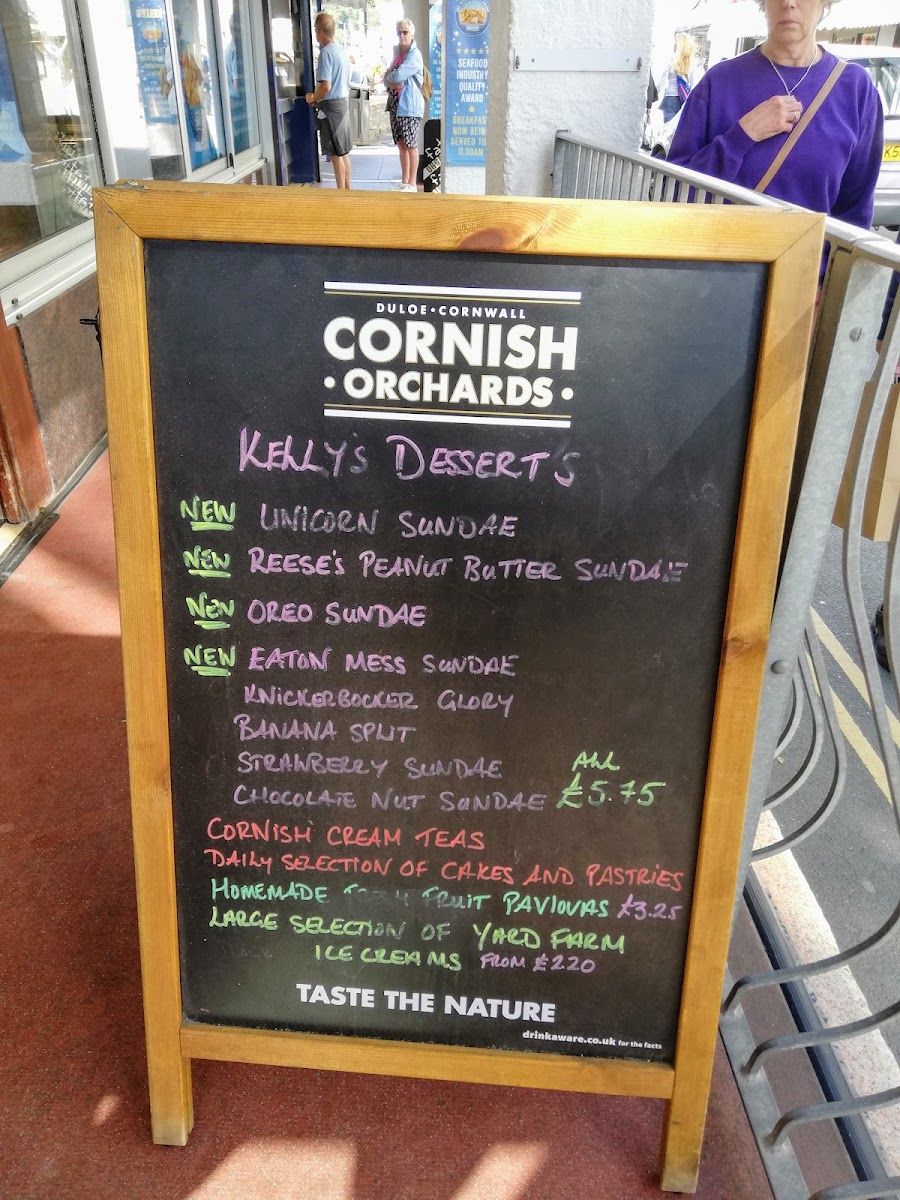 SEAFOOD
INDUSTRY
QUALITY
AWARD
BREAKFAST
NOW BEING
SERVED TILL
11.30AM
DULOE • CORNWALL
CORNISH
• ORCHARDS •
KELLY'S DESSERT'S
NEW UNICORN SUNDAE
NEW REESE'S PEANUT BUTTER SUNDAE
NEW OREO SUNDAE
NEW EATON MESS SUNDAE
KNICKERBOCKER GLORY
BANANA SPLIT
STRAWBERRY SUNDAE ALL
CHOCOLATE NUT SUNDAE £5.75
CORNISH CREAM TEAS
DAILY SELECTION OF CAKES AND PASTRIES
HOMEMADE FRUIT PAVLOVAS £3.25
LARGE SELECTION OF YARD FARM
ICE CREAMS FROM £2.20
TASTE THE NATURE
drinkaware.co.uk for the facts